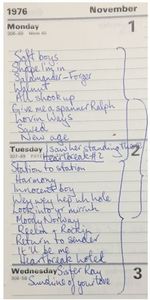 1976 November
Monday 1
Soft boys
Shape I'm in
Salamander - Forger
Walnut
All shook up
Give me a spanner Ralph
Lovin Ways
Saved
New age
Tuesday I saw her standing there 2
Heartbreak #2
Station to station
Harmony
Innocent boy
Wey wey hep uh hole
Look into yr mirror
Moody Norway
Reelin & Rockin
Return to sender
It'll be me
Heartbreak hotel
Wednesday Sister Ray 3
Sunshine of your love